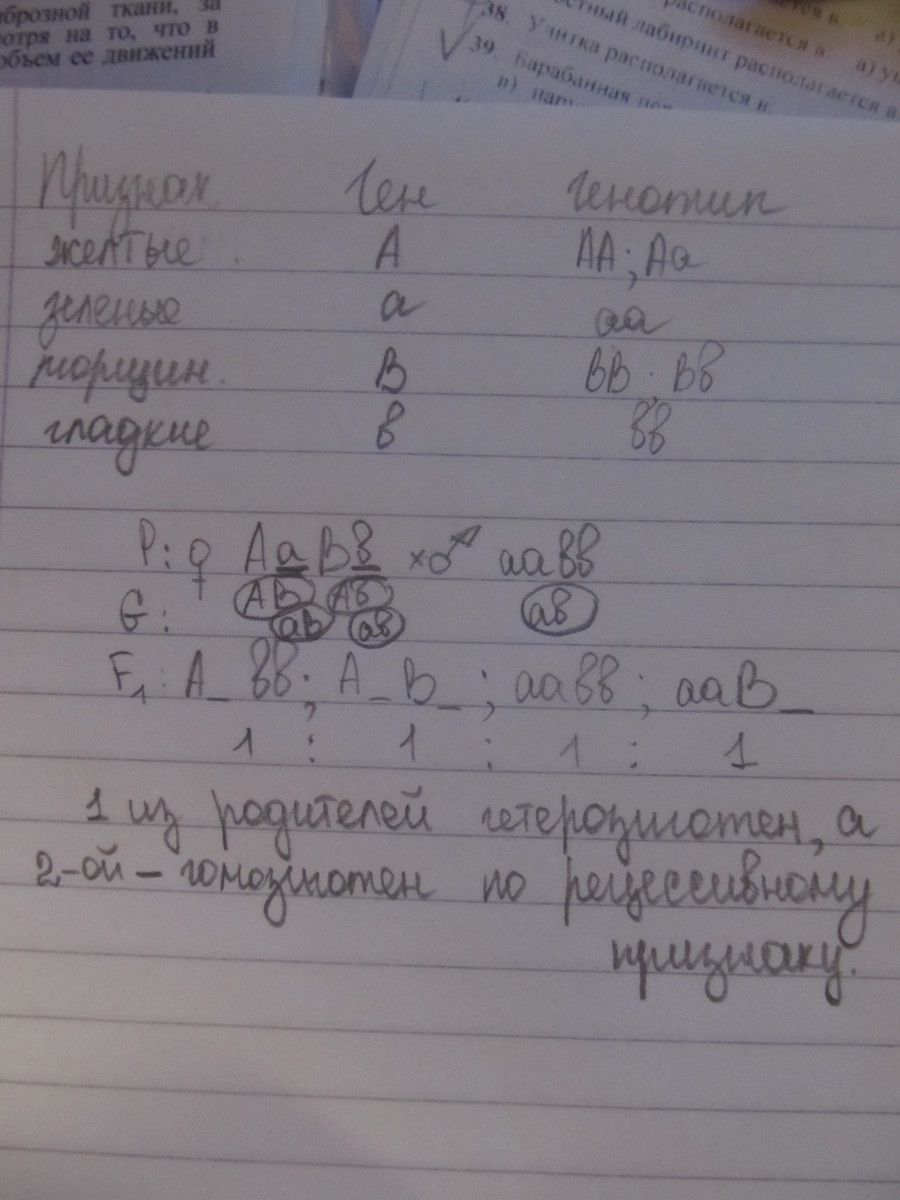 иброзной ткани, за
отря на то, что в
объем ее движений
располагается в
38. Улитка располагается в:
39. Барабанная
в)
стный лабиринт располагается в
Признак Ген Генотип
желтые A AA; Aa
зеленые a aa
морщин. B BB; Bв
гладкие в вв
P: ♀ AaBв × ♂ aaвв
G: AB Aв aB aв aв
F₁: A_вв; A_B_; aaвв; aaB_
1 : 1 : 1 : 1
1 из родителей гетерозиготен, а
2-ой – гомозиготен по рецессивному
признаку.